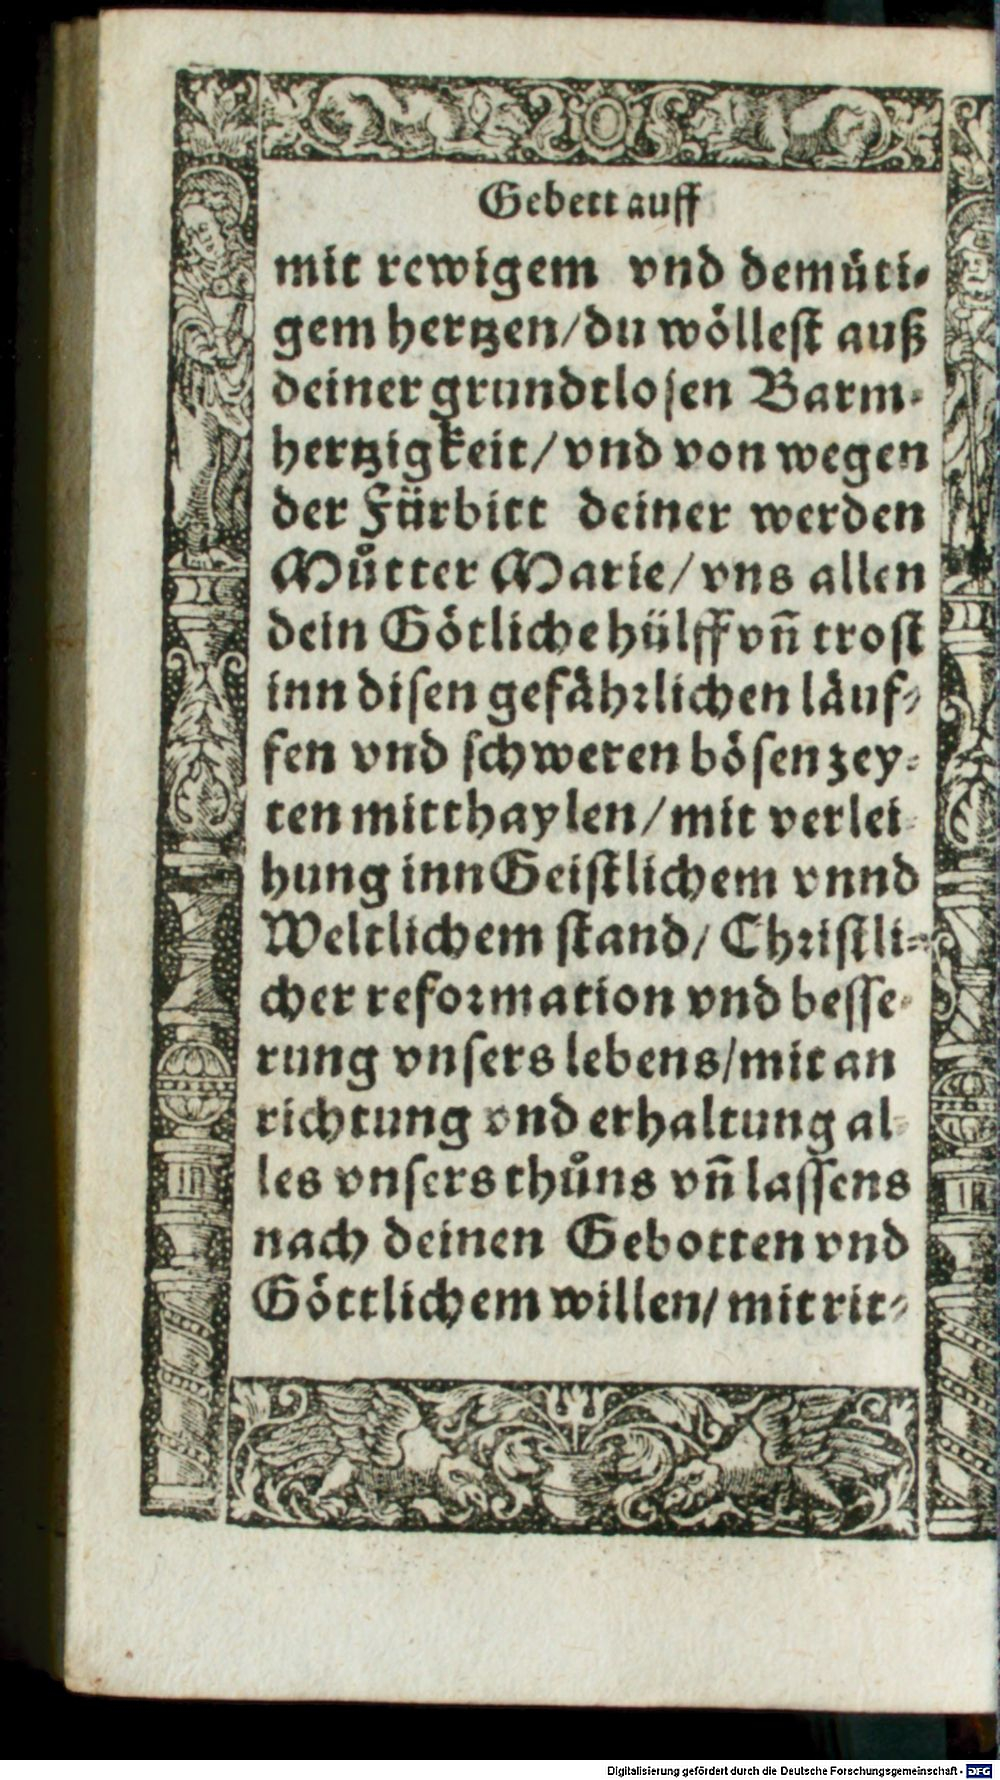 Gebett auff
mit rewigem vnd demüti⸗
gem hertzen/du wöllest auß
deiner grundtlosen Barm⸗
hertzigkeit/vnd von wegen
der Fürbitt deiner werden
Můtter Marie/vns allen
dein Götliche hülff vñ trost
inn disen gefährlichen läuf⸗
fen vnd schweren bösen zey⸗
ten mitthaylen/mit verlei⸗
hung inn Geistlichem vnnd
Weltlichem stand/Christli⸗
cher reformation vnd besse⸗
rung vnsers lebens/mit an
richtung vnd erhaltung al⸗
les vnsers thůns vñ lassens
nach deinen Gebotten vnd
Göttlichem willen/mit rit⸗
Digitalisierung gefördert durch die Deutsche Forschungsgemeinschaft - DFG